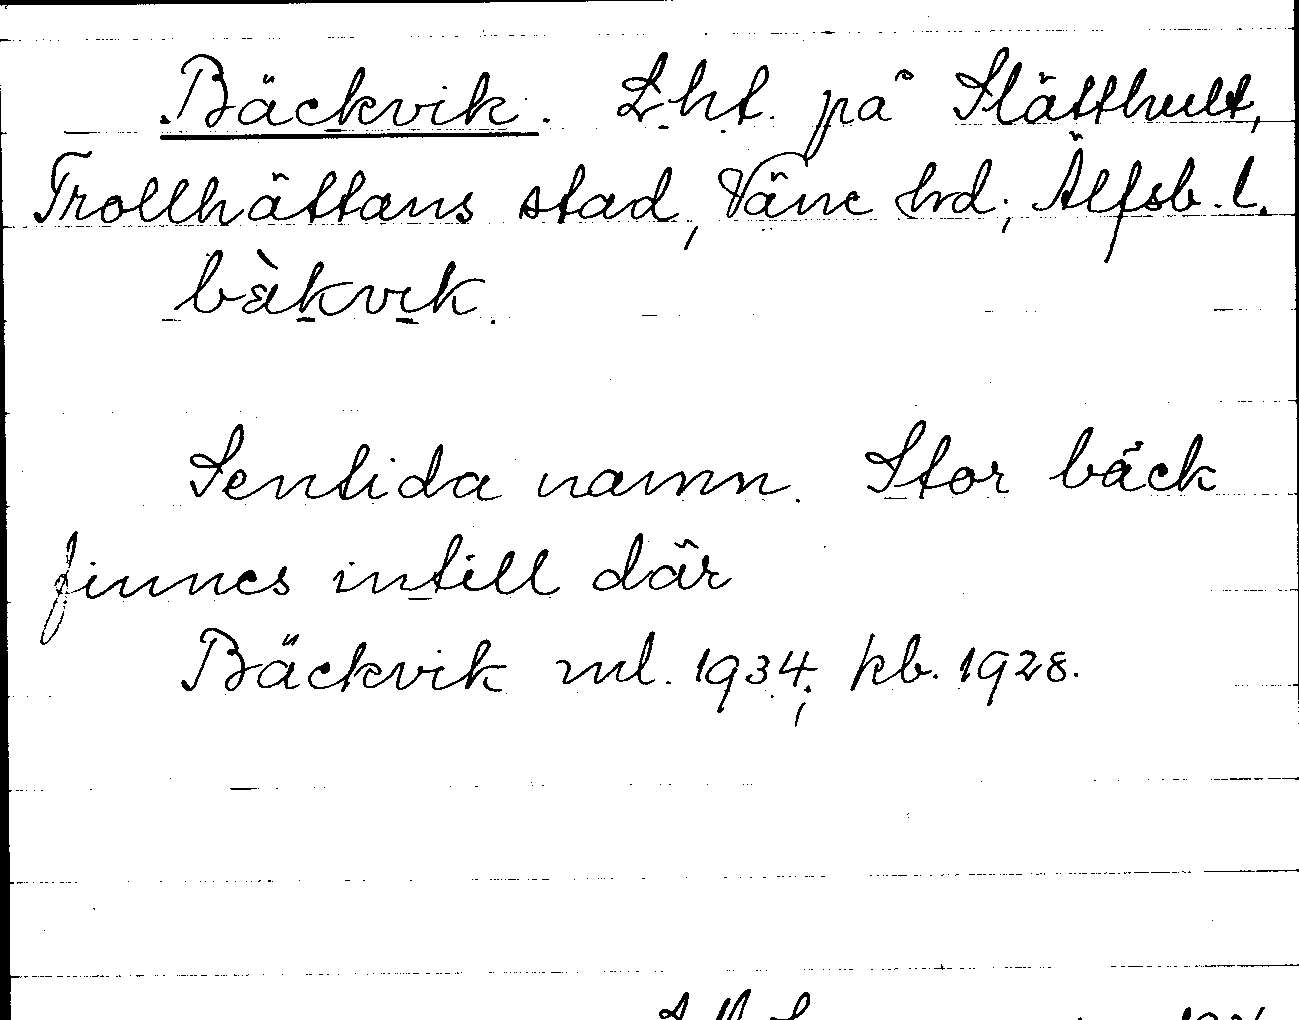 Bäckvik. Lht. på Slätthult,
Trollhättans stad, Väne hrd; Älfsb. l.
bàkvik.
Sentida namn. Stor bäck
finnes intill där
Bäckvik ml. 1934; kb. 1928.